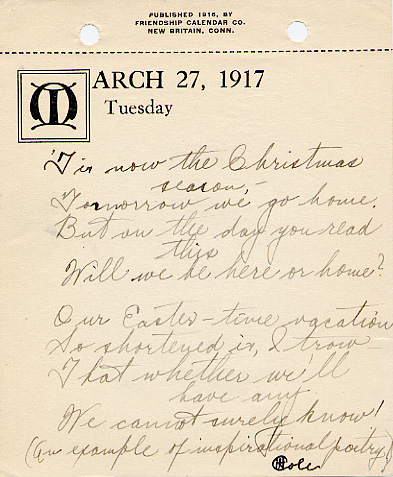 PUBLISHED 1916, BY
FRIENDSHIP CALENDAR CO.
NEW BRITAIN, CONN.
MARCH 27, 1917
Tuesday
'Tis now the Christmas
season,-
Tomorrow we go home.
But on the day you read
this
Will we be here or home?
Our Easter-time vacation
So shortened is, I trow-
That whether we'll
have any
We cannot surely know!
(An example of inspirational poitry)
Cole